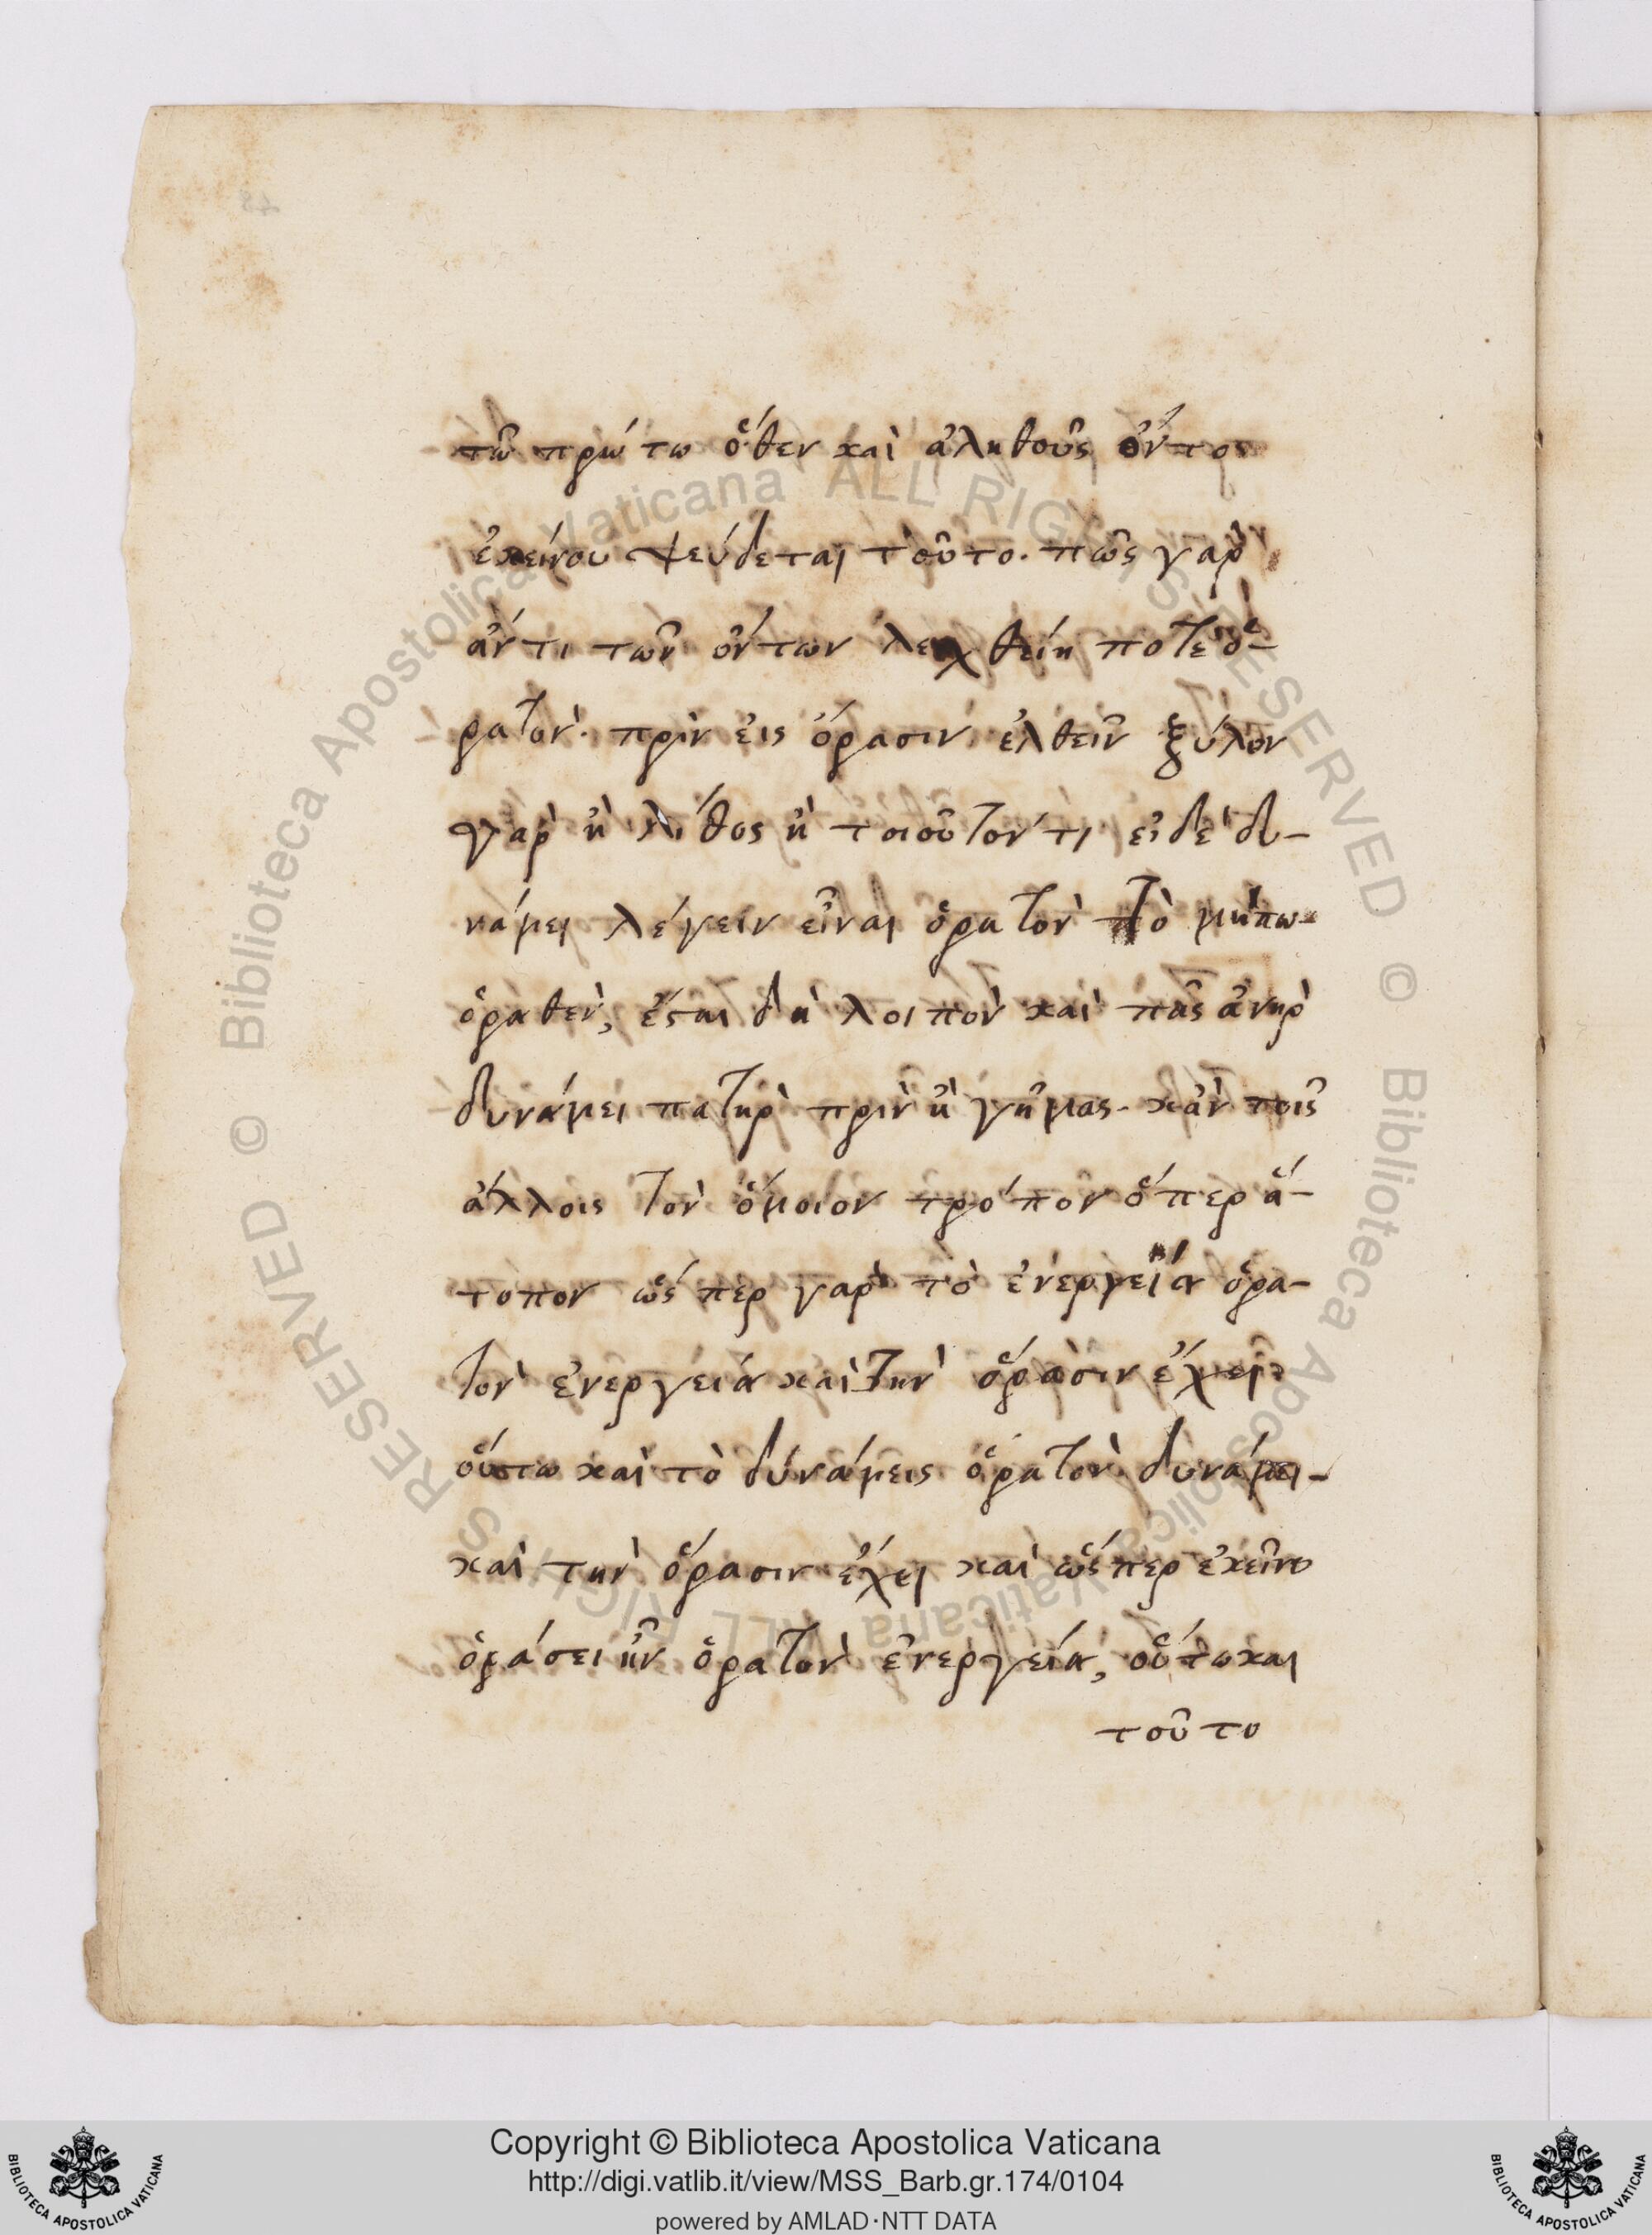 τῶ πρώτω ὅθεν καὶ ἀληθοῦς ὄντος
ἐκείνου ψεύδεται τοῦτο. πῶς γαρ
ἄν τι τῶν ὄντων λεχθείη ποτὲ ὁ-
ρατὸν· πρὶν εἰς ὅρασιν ἐλθεῖν ξύλον
γαρ ἢ λίθος ἢ τοιοῦτον τι εἰ δὲ δυ-
νάμει λέγειν εἶναι ὁρατὸν τὸ μήπω
ὁραθὲν, ἔσται δὴ λοιπὸν καὶ πᾶς ἀνὴρ
δυνάμει πατὴρ πρὶν ἢ γῆμας. κἂν τοῖς
ἄλλοις τὸν ὅμοιον τρόπον ὅπερ ἄ-
τοπον ὥσπερ γαρ τὸ ἐνεργεία ὁρα-
τὸν ἐνεργεία καὶ τὴν ὅρασιν ἔχει
οὕτω καὶ τὸ δύνάμεις ὁρατὸν δυνάμει-
καὶ τὴν ὅρασιν ἔχει καὶ ὥσπερ ἐκεῖνο
ὁράσει ἦν ὁρατὸν ἐνεργεία, οὕτω και
τοῦτο
© Biblioteca Apostolica Vaticana ALL RIGHTS RESERVED
© Biblioteca Apostolica Vaticana ALL RIGHTS RESERVED
Copyright © Biblioteca Apostolica Vaticana
http://digi.vatlib.it/view/MSS_Barb.gr.174/0104
powered by AMLAD·NTT DATA
BIBLIOTECA APOSTOLICA VATICANA
BIBLIOTECA APOSTOLICA VATICANA